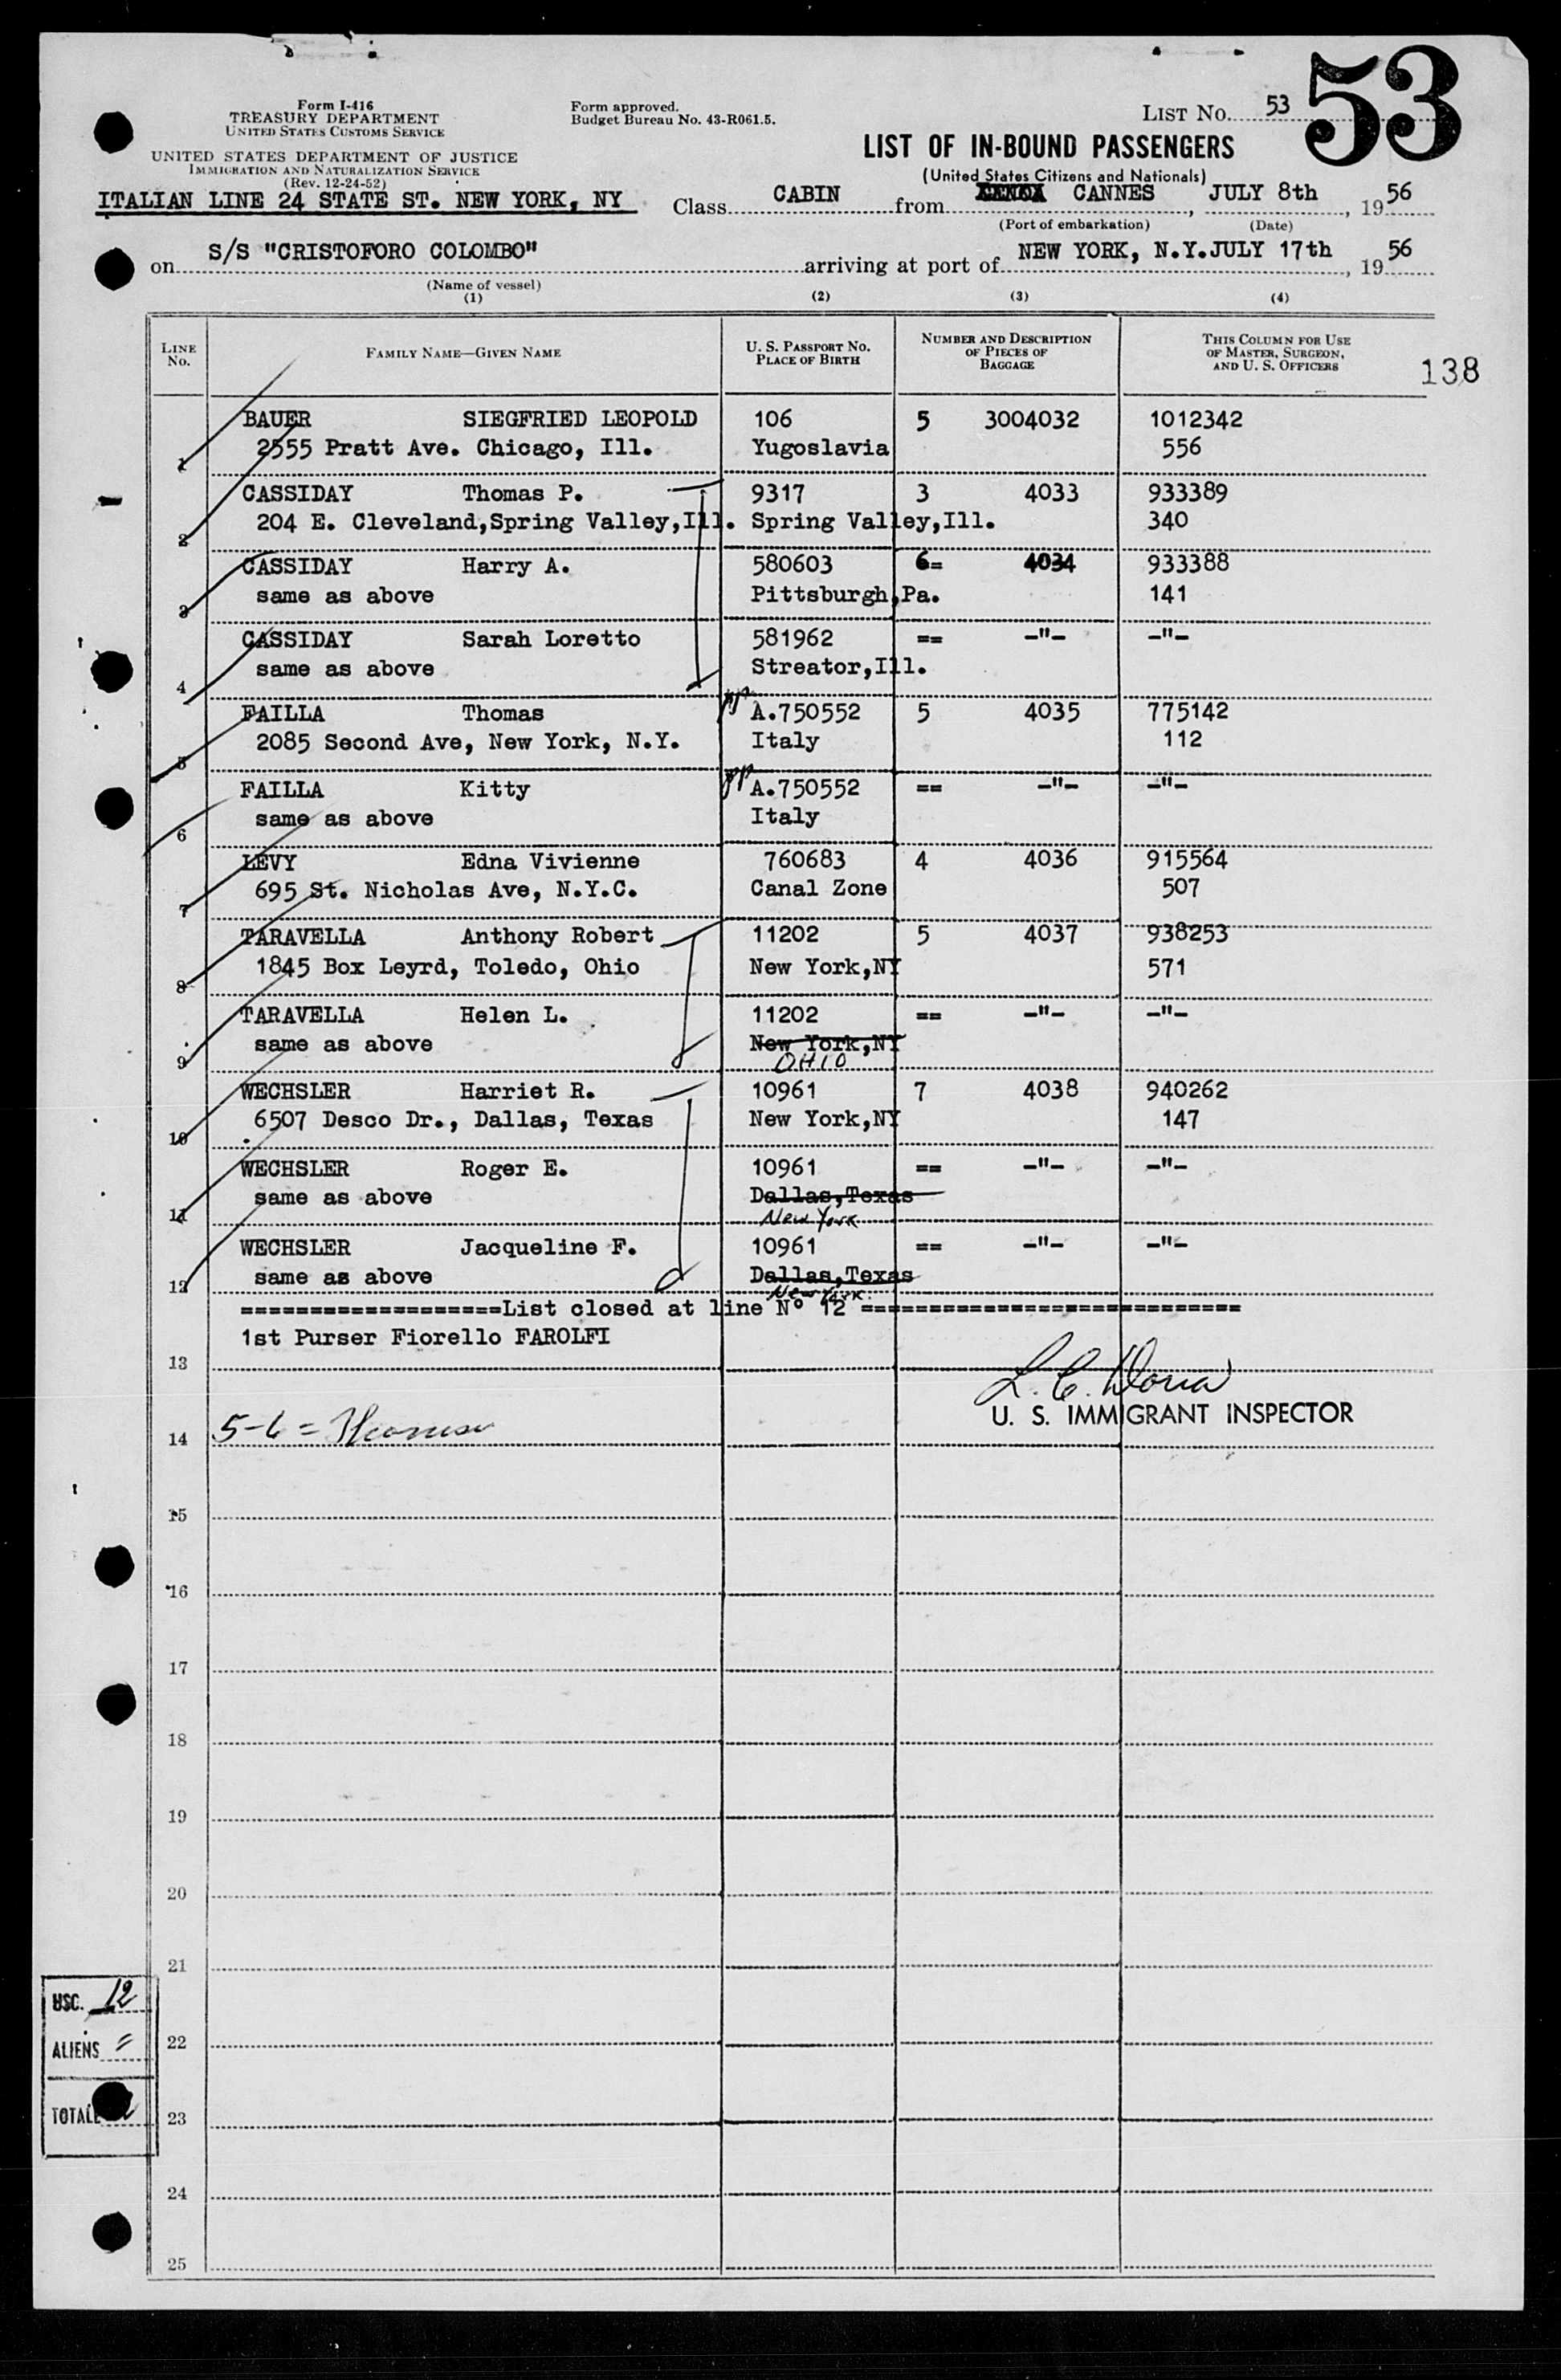 53
Form I-416
TREASURY DEPARTMENT
UNITED STATES CUSTOMS SERVICE
Form approved.
Budget Bureau No. 43-R061.5.
LIST No. 53
UNITED STATES DEPARTMENT OF JUSTICE
IMMIGRATION AND NATURALIZATION SERVICE
(Rev. 12-24-52)
LIST OF IN-BOUND PASSENGERS
(United States Citizens and Nationals)
ITALIAN LINE 24 STATE ST. NEW YORK, NY Class CABIN from CANNES, JULY 8th, 1956
(Port of embarkation) (Date)
on S/S "CRISTOFORO COLOMBO" arriving at port of NEW YORK, N.Y. JULY 17th, 1956
(Name of vessel)
(1) (2) (3) (4)
LINE No. FAMILY NAME—GIVEN NAME U. S. PASSPORT No. PLACE OF BIRTH NUMBER AND DESCRIPTION OF PIECES OF BAGGAGE THIS COLUMN FOR USE OF MASTER, SURGEON, AND U. S. OFFICERS
138
BAUER SIEGFRIED LEOPOLD 106 5 3004032 1012342
1 2555 Pratt Ave. Chicago, Ill. Yugoslavia 556
CASSIDAY Thomas P. 9317 3 4033 933389
2 204 E. Cleveland,Spring Valley,Ill. Spring Valley,Ill. 340
CASSIDAY Harry A. 580603 6= 4034 933388
3 same as above Pittsburgh,Pa. 141
CASSIDAY Sarah Loretto 581962 == -"- -"-
4 same as above Streator,Ill.
FAILLA Thomas PP A.750552 5 4035 775142
5 2085 Second Ave, New York, N.Y. Italy 112
FAILLA Kitty PP A.750552 == -"- -"-
6 same as above Italy
LEVY Edna Vivienne 760683 4 4036 915564
7 695 St. Nicholas Ave, N.Y.C. Canal Zone 507
TARAVELLA Anthony Robert 11202 5 4037 938253
8 1845 Box Leyrd, Toledo, Ohio New York,NY 571
TARAVELLA Helen L. 11202 == -"- -"-
9 same as above New York,NY
OHIO
WECHSLER Harriet R. 10961 7 4038 940262
10 6507 Desco Dr., Dallas, Texas New York,NY 147
WECHSLER Roger E. 10961 == -"- -"-
11 same as above Dallas,Texas
New York
WECHSLER Jacqueline F. 10961 == -"- -"-
12 same as above Dallas,Texas
New York
===================List closed at line No 12 ============================
1st Purser Fiorello FAROLFI
13
L. C. Doria
U. S. IMMIGRANT INSPECTOR
14 5-6 =
15
16
17
18
19
20
21
USC. 12
22
ALIENS =
23
TOTAL
24
25